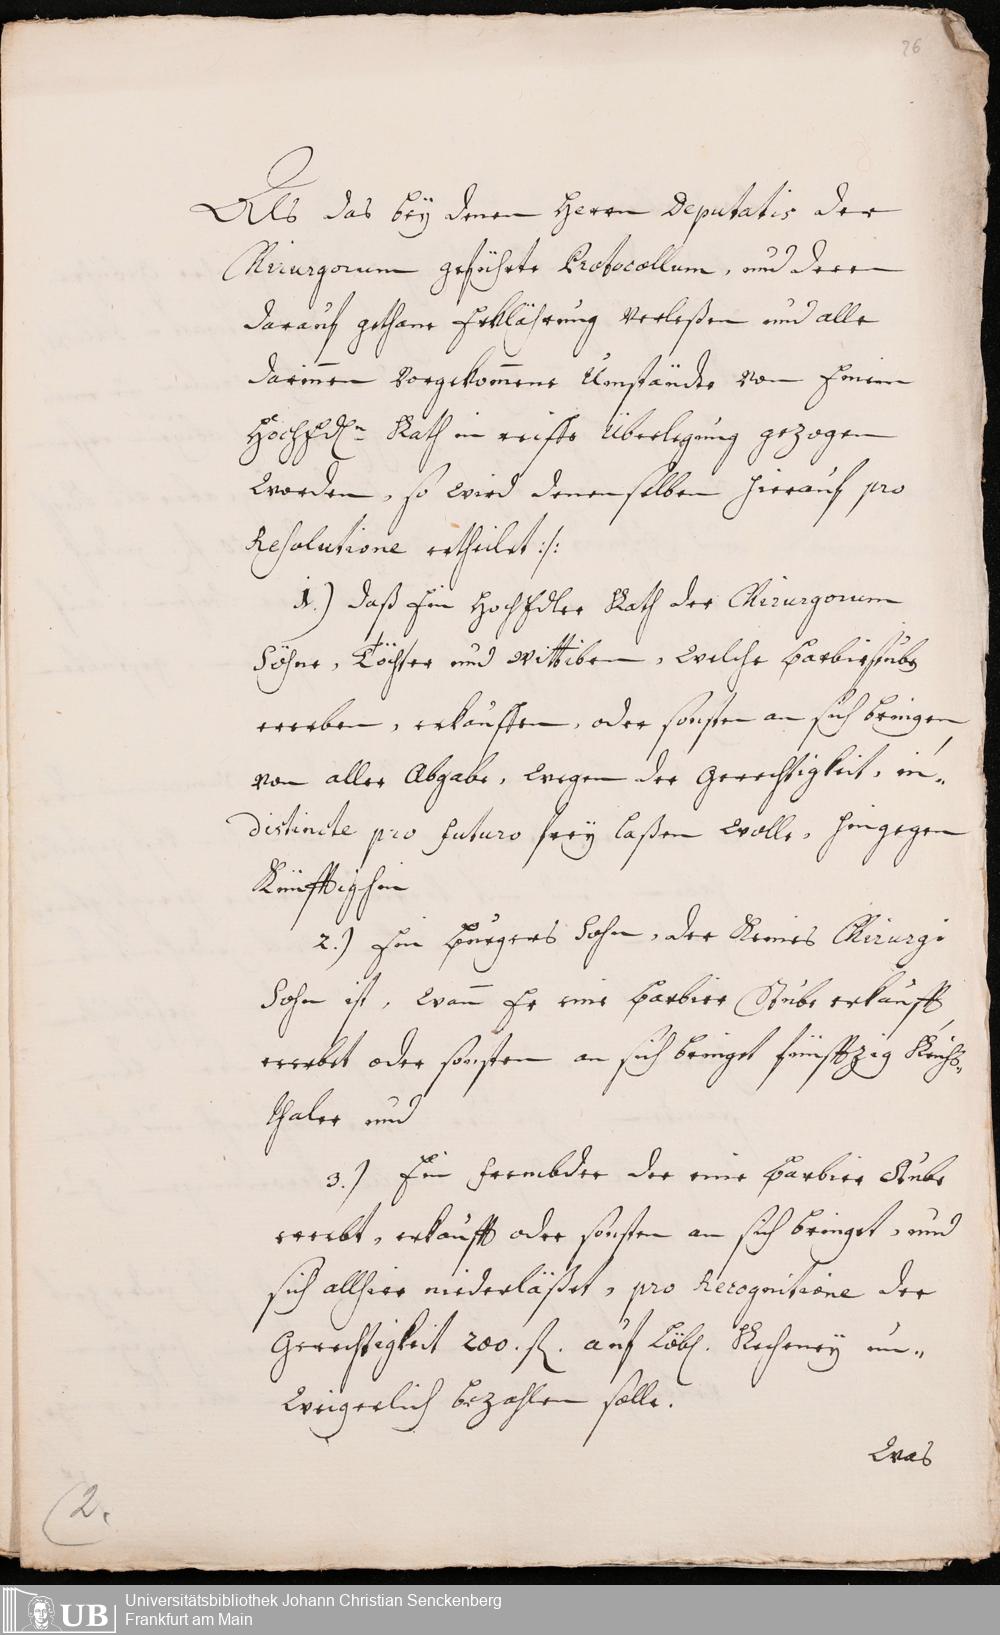 26
Als das bey denen Herrn Deputatis der
Chirurgorum geführte Protocollum, und deren
darauf gethane Erklährung verleßen und alle
darinnen vorgekommene Umstände von Einem
HochEdlen Rath in reiffe Überlegung gezogen
worden, so wird denenselben hierauf pro
Resolutione ertheilet :/:
1.) daß Ein HochEdler Rath der Chirurgorum
Söhne, Töchter und Wittiben, welche Barbierstube
ererben, erkauffen, oder sonsten an sich bringen
von aller Abgabe, wegen der Gerechtigkeit, in„
distincte pro futuro frey laßen wolle, hingegen
Künfftighin
2.) Ein Burgers Sohn, der Keines Chirurgi
Sohn ist, wann Er eine Barbier Stube erkaufft
ererbet oder sonsten an sich bringet funffzig Reichs„
thaler und
3.) Ein frembder der eine Barbier Stube
ererbt, erkaufft oder sonsten an sich bringet, und
sich allhier niederläßet, pro Recognitione der
Gerechtigkeit 200. fl. auf Löbl. Recheney un„
weigerlich bezahlen solle.
Was
(2.
UB
Universitätsbibliothek Johann Christian Senckenberg
Frankfurt am Main